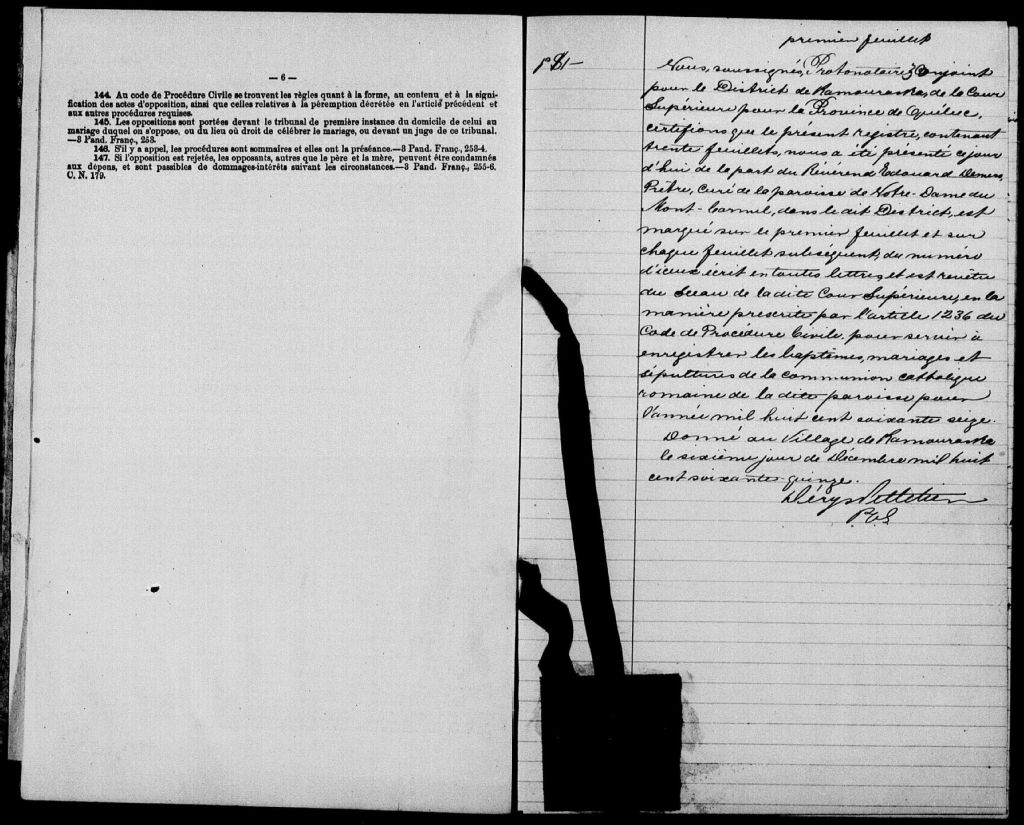 — 6 —
144. Au code de Procédure Civile se trouvent les règles quant à la forme, au contenu et à la signi-
fication des actes d'opposition, ainsi que celles relatives à la péremption décrétée en l'article précédent et
aux autres procédures requises.
145. Les oppositions sont portées devant le tribunal de première instance du domicile de celui au
mariage duquel on s'oppose, ou du lieu où droit de célébrer le mariage, ou devant un juge de ce tribunal.
—3 Pand. Franç., 253.
146. S'il y a appel, les procédures sont sommaires et elles ont la préséance.—3 Pand. Franç., 253-4.
147. Si l'opposition est rejetée, les opposants, autres que le père et la mère, peuvent être condamnés
aux dépens, et sont passibles de dommages-intérêts suivant les circonstances.—3 Pand. Franç., 255-6.
C. N. 179.
premier feuillet
Nous, soussigné, Protonotaire Conjoint
pour le District de Kamouraska, de la Cour
Supérieure pour la Province de Québec,
certifions que le présent registre, contenant
trente feuillets, nous a été présenté ce jour
d'hui de la part du Révérend Edouard Demers,
Prêtre, Curé de la paroisse de Notre-Dame du
Mont-Carmel, dans le dit District, est
marqué sur le premier feuillet et sur
chaque feuillet subséquent, du numéro
d'iceux écrit en toutes lettres, et est revêtu
du Sceau de la dite Cour Supérieure, en la
manière prescrite par l'article 1236 du
Code de Procédure Civile, pour servir à
enregistrer les baptêmes, mariages et
sépultures de la communion catholique
romaine de la dite paroisse pour
l'année mil huit cent soixante seize.
Donné au Village de Kamouraska
le sixième jour de Décembre mil huit
cent soixante quinze.
Déry & Pelletier
P.C.S.